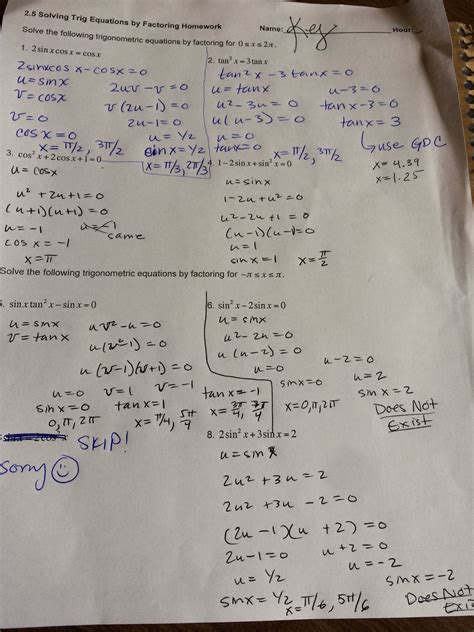 2.5 Solving Trig Equations by Factoring Homework Name: Key Hour:
Solve the following trigonometric equations by factoring for 0 ≤ x ≤ 2π.
1. 2sin x cos x = cos x
2sinxcos x - cosx = 0
u = sinx
v = cosx
2uv - v = 0
v (2u-1) = 0
v = 0
2u-1 = 0
cos x = 0
u = 1/2
x = π/2, 3π/2
sin x = 1/2
x = π/3, 2π/3
2. tan² x = 3 tan x
tan² x - 3 tan x = 0
u = tanx
u² - 3u = 0
u(u-3) = 0
u = 0
tanx = 0
x = π/2, 3π/2
u-3 = 0
tan x - 3 = 0
tanx = 3
↳ use GDC
x = 4.39
x = 1.25
3. cos² x + 2 cos x + 1 = 0
u = cosx
u² + 2u + 1 = 0
(u+1)(u+1) = 0
u = -1
u = -1
same
cos x = -1
x = π
4. 1 - 2sin x + sin² x = 0
u = sinx
1 - 2u + u² = 0
u² - 2u + 1 = 0
(u-1)(u-1) = 0
u = 1
sin x = 1 x = π/2
Solve the following trigonometric equations by factoring for -π ≤ x ≤ π.
5. sin x tan² x - sin x = 0
u = sinx
v = tanx
uv² - u = 0
u(v²-1) = 0
u (v-1)(v+1) = 0
u = 0 v = 1 v = -1
sin x = 0 tan x = 1 tan x = -1
0, π, 2π x = π/4, 5π/4 x = 3π/4, 7π/4
6. sin² x - 2sin x = 0
u = sinx
u² - 2u = 0
u (u-2) = 0
u = 0
u-2 = 0
sinx = 0
u = 2
x = 0, π, 2π
sin x = 2
Does Not
Exist
SKIP!
Sorry ☺
8. 2sin² x + 3sin x = 2
u = sin x
2u² + 3u = 2
2u² + 3u - 2 = 0
(2u-1)(u+2) = 0
2u-1 = 0 u+2 = 0
u = 1/2 u = -2
sinx = 1/2 sinx = -2
x = π/6, 5π/6 Does Not
Exist